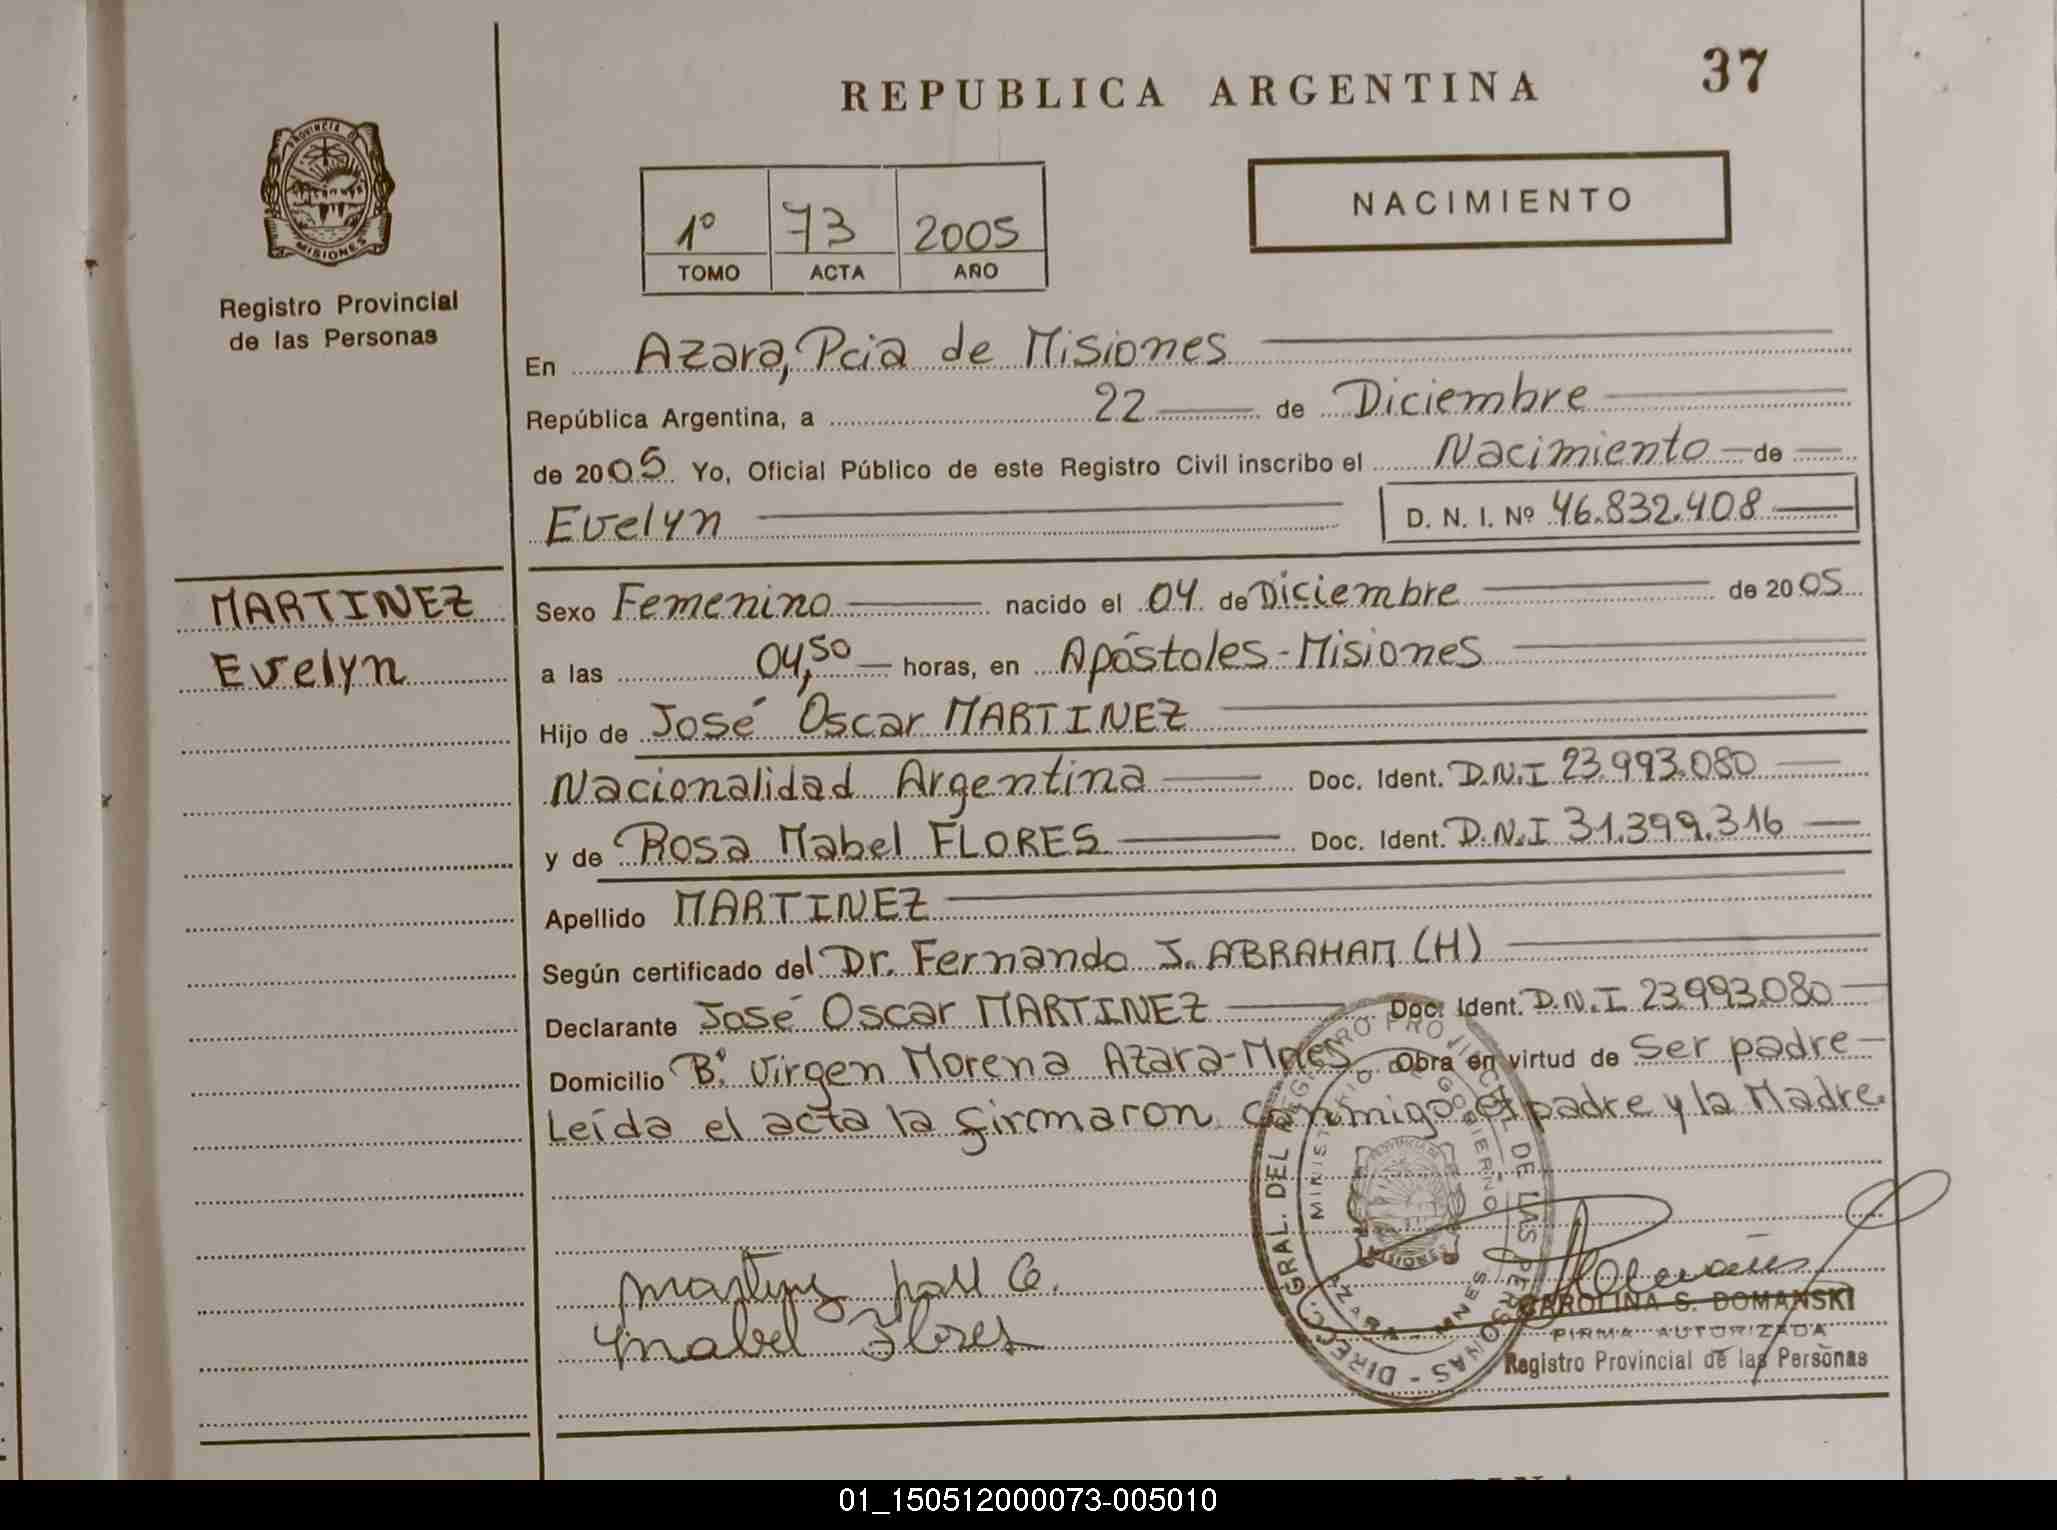 REPUBLICA ARGENTINA
37
PROVINCIA DE
MISIONES
Registro Provincial
de las Personas
1º 73 2005
TOMO ACTA AÑO
NACIMIENTO
En Azara, Pcia de Misiones
República Argentina, a 22 de Diciembre
de 2005 Yo, Oficial Público de este Registro Civil inscribo el Nacimiento de
Evelyn D. N. I. Nº 46.832.408
MARTINEZ
Evelyn
Sexo Femenino nacido el 04 de Diciembre de 2005
a las 04,50 horas, en Apóstoles - Misiones
Hijo de José Oscar MARTINEZ
Nacionalidad Argentina Doc. Ident. D.N.I 23.993.080
y de Rosa Mabel FLORES Doc. Ident. D.N.I 31.399.316
Apellido MARTINEZ
Según certificado del Dr. Fernando J. ABRAHAM (H)
Declarante José Oscar MARTINEZ Doc. Ident. D.N.I 23.993.080
Domicilio Bº Virgen Morena Azara-Mnes Obra en virtud de Ser padre
Leída el acta la firmaron conmigo el padre y la Madre.
DIRECC. GRAL. DEL REGISTRO PROVINCIAL DE LAS PERSONAS
MINISTERIO DE GOBIERNO
PROVINCIA DE
MISIONES
AZARA - MNES
Mabel Flores
CAROLINA S. DOMANSKI
FIRMA AUTORIZADA
Registro Provincial de las Personas
01_150512000073-005010